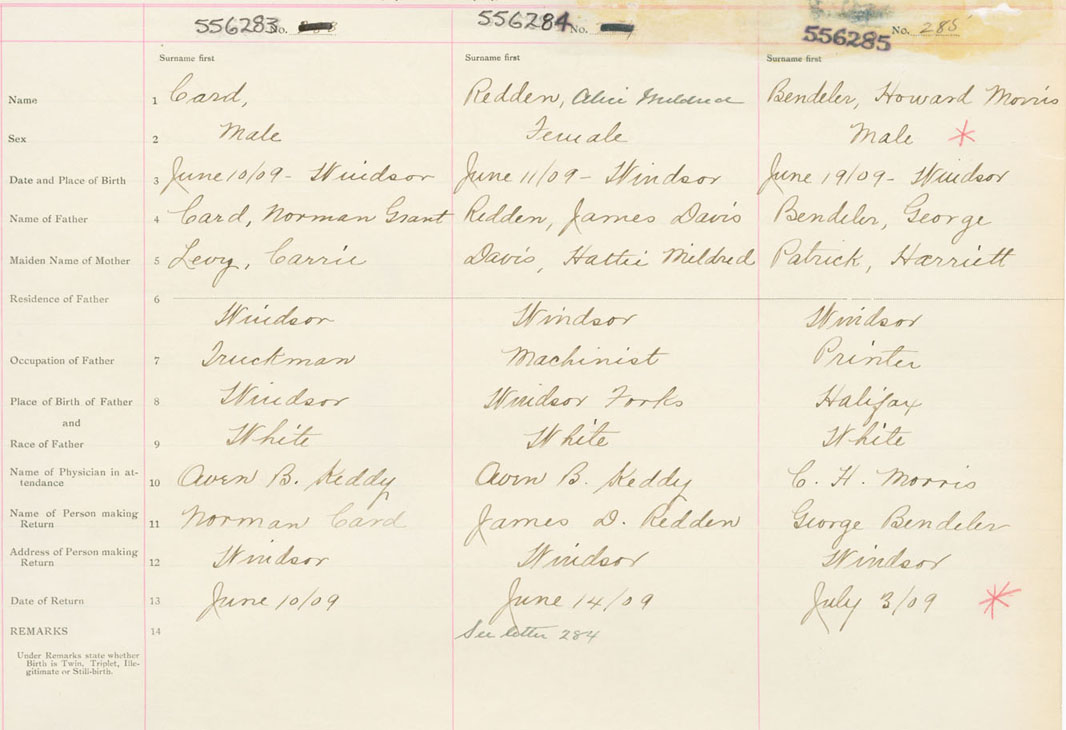 556283 No.
556284 No.
556285 No. 285
Surname first Surname first Surname first
Name 1 Card, Redden, Alice Mildred Bendeler, Howard Morris
Sex 2 Male Female Male
Date and Place of Birth 3 June 10/09 - Windsor June 11/09 - Windsor June 19/09 - Windsor
Name of Father 4 Card, Norman Grant Redden, James Davis Bendeler, George
Maiden Name of Mother 5 Levy, Carrie Davis, Hattie Mildred Patrick, Harriett
Residence of Father 6
Windsor Windsor Windsor
Occupation of Father 7 Truckman Machinist Printer
Place of Birth of Father 8 Windsor Windsor Forks Halifax
and
Race of Father 9 White White White
Name of Physician in at-
tendance 10 Aven B. Keddy Aven B. Keddy C. H. Morris
Name of Person making
Return 11 Norman Card James D. Redden George Bendeler
Address of Person making
Return 12 Windsor Windsor Windsor
Date of Return 13 June 10/09 June 14/09 July 3/09
REMARKS 14 See letter 284
Under Remarks state whether
Birth is Twin, Triplet, Ille-
gitimate or Still-birth.